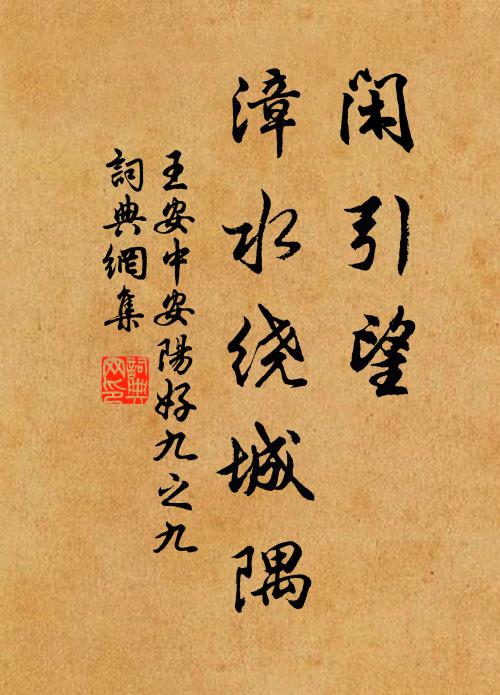 闲引望
漳水绕城隅
王安中安陽好九之九
詞典網集
詞典
网印